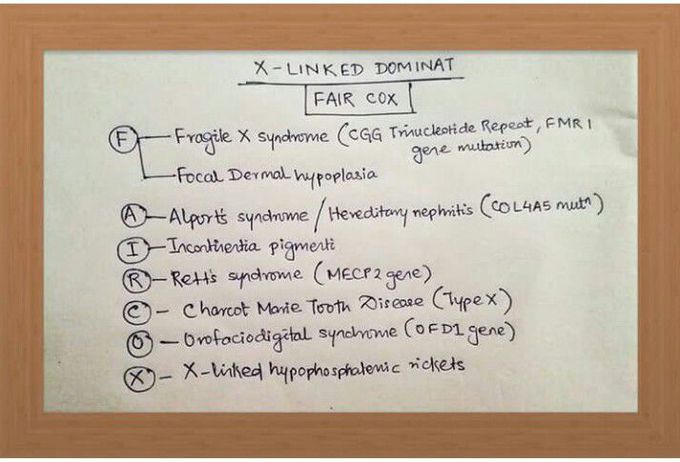 X-LINKED DOMINAT
FAIR COX
F - Fragile X syndrome (CGG Trinucleotide Repeat, FMR1
gene mutation)
- Focal Dermal hypoplasia
A - Alport's syndrome / Hereditary nephritis (COL4A5 mutⁿ)
I - Incontinentia pigmenti
R - Rett's syndrome (MECP2 gene)
C - Charcot Marie Tooth Disease (Type X)
O - Orofaciodigital syndrome (OFD1 gene)
X - X-linked hypophosphatemic rickets